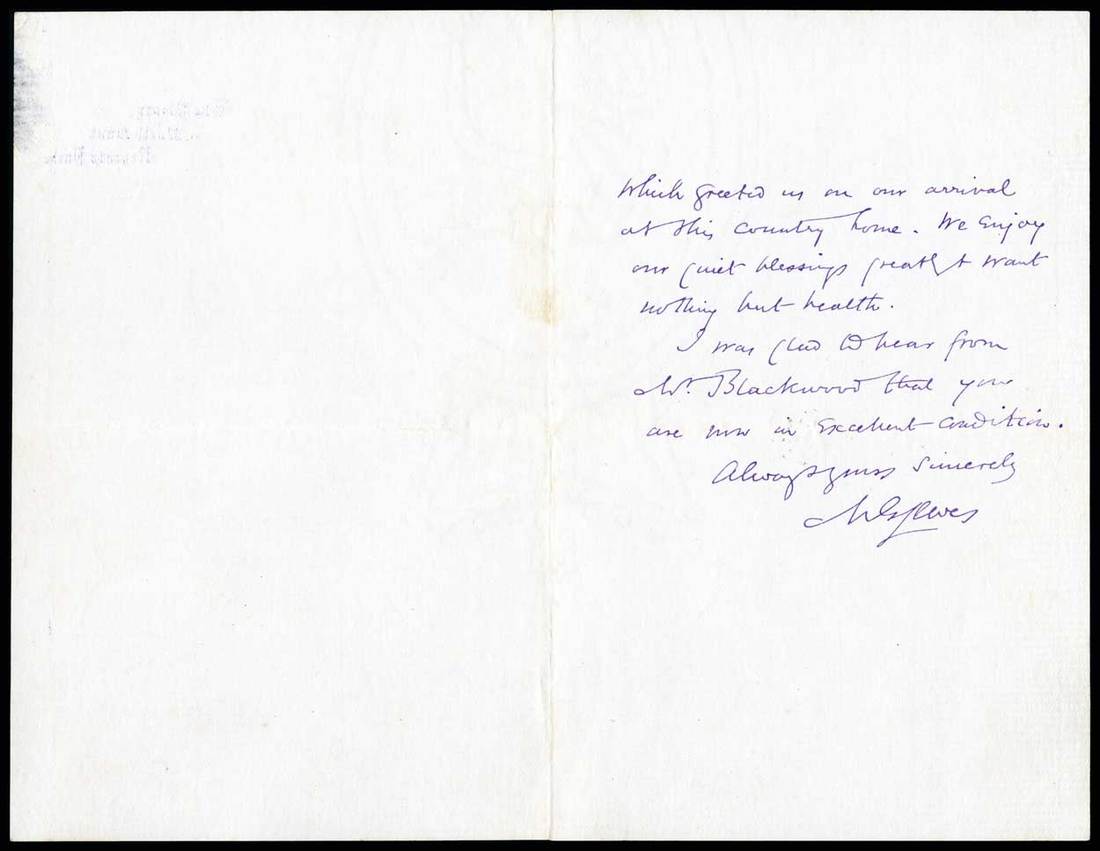 Which greeted us on our arrival
at this country home. We enjoy
our quiet blessings greatly & want
nothing but health.
I was glad to hear from
Mr. Blackwood that you
are now in excellent condition.
Always yours sincerely
M E Lewes